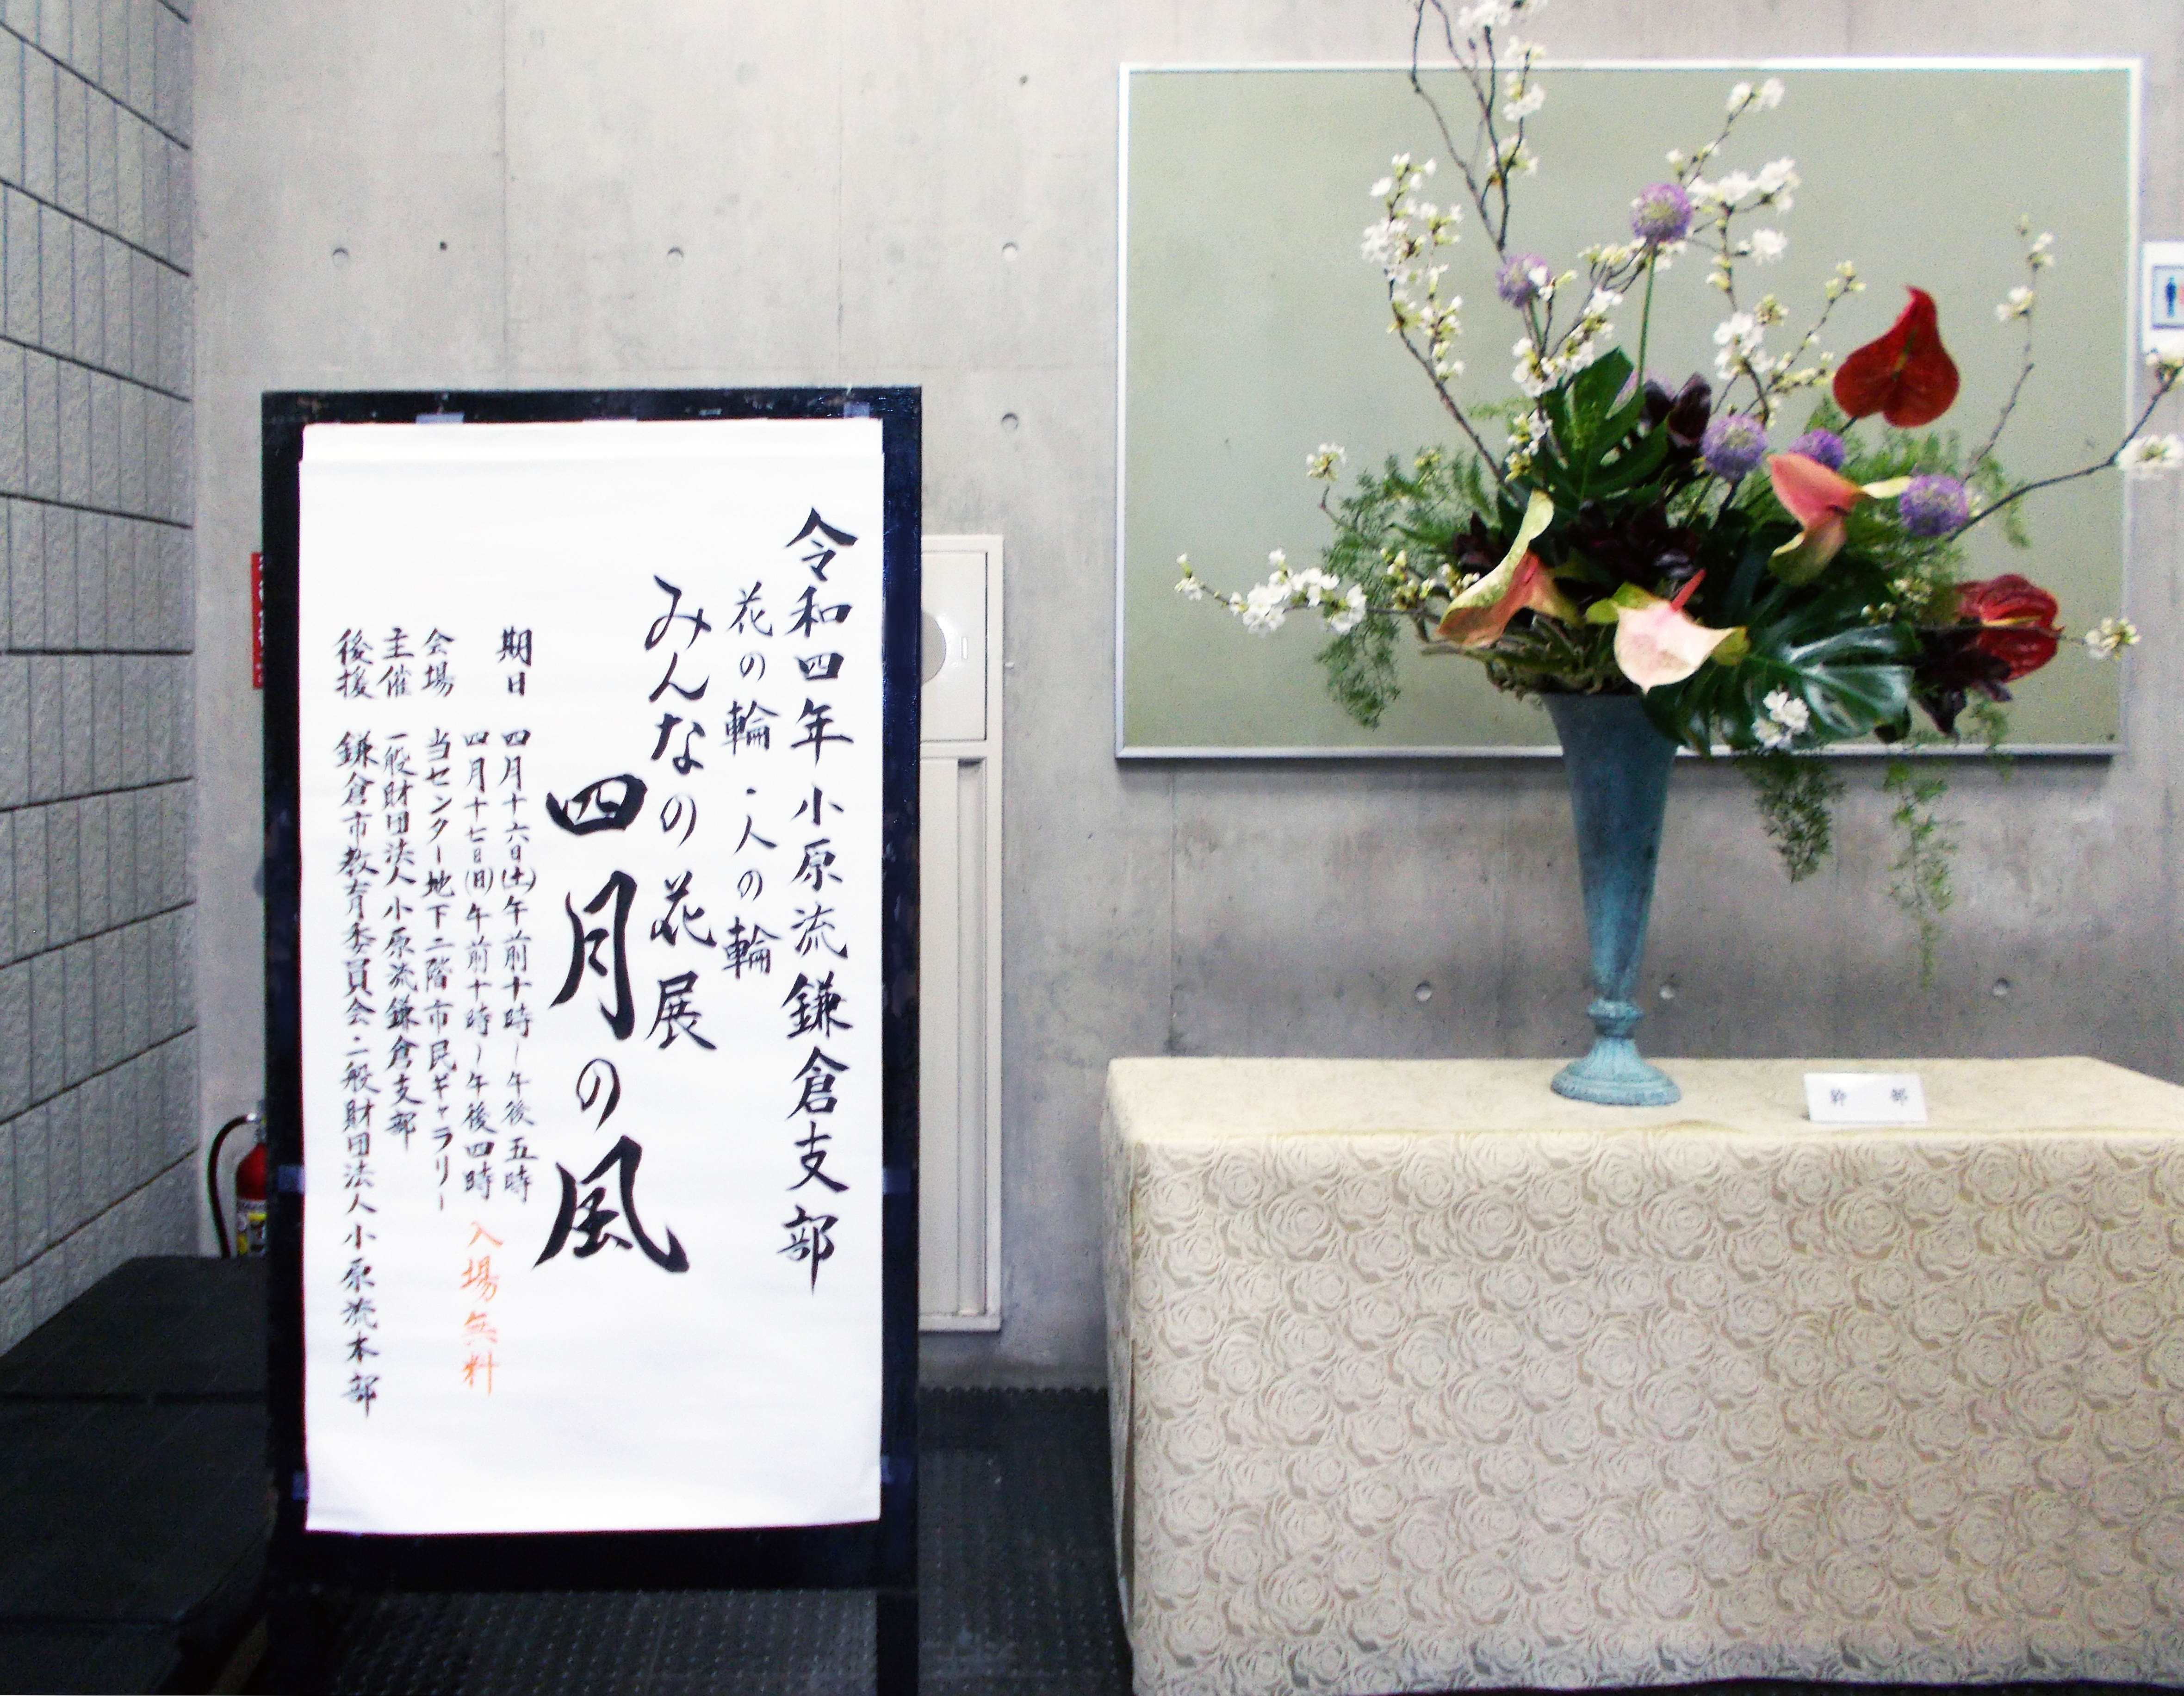 令和四年 小原流 鎌倉支部
花の輪・人の輪
みんなの花展
四月の風
期日 四月十六日(土)午前十時~午後五時
四月十七日(日)午前十時~午後四時 入場無料
会場 当センター地下二階市民ギャラリー
主催 一般財団法人小原流鎌倉支部
後援 鎌倉市教育委員会・一般財団法人小原流本部
幹部